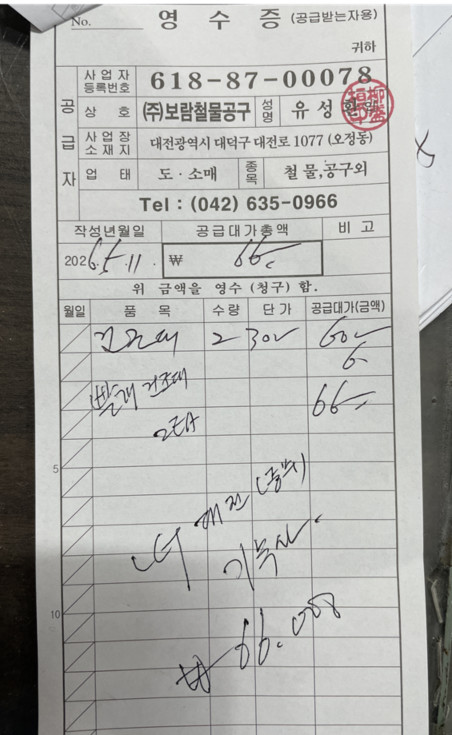 No. 영 수 증 (공급받는자용)
귀하
공급자
사업자등록번호 618-87-00078
상 호 (주)보람철물공구 성명 유성현
사업장소재지 대전광역시 대덕구 대전로 1077 (오정동)
업 태 도·소매 종목 철물,공구외
Tel : (042) 635-0966
작성년월일 공급대가총액 비 고
2026.5.11. ₩ 66,
위 금액을 영수 (청구) 함.
월일 품 목 수량 단 가 공급대가(금액)
건조대 2 30 60
6
빨래건조대 66
2EA
5
대전(중부)
기숙사.
10
₩ 66.000